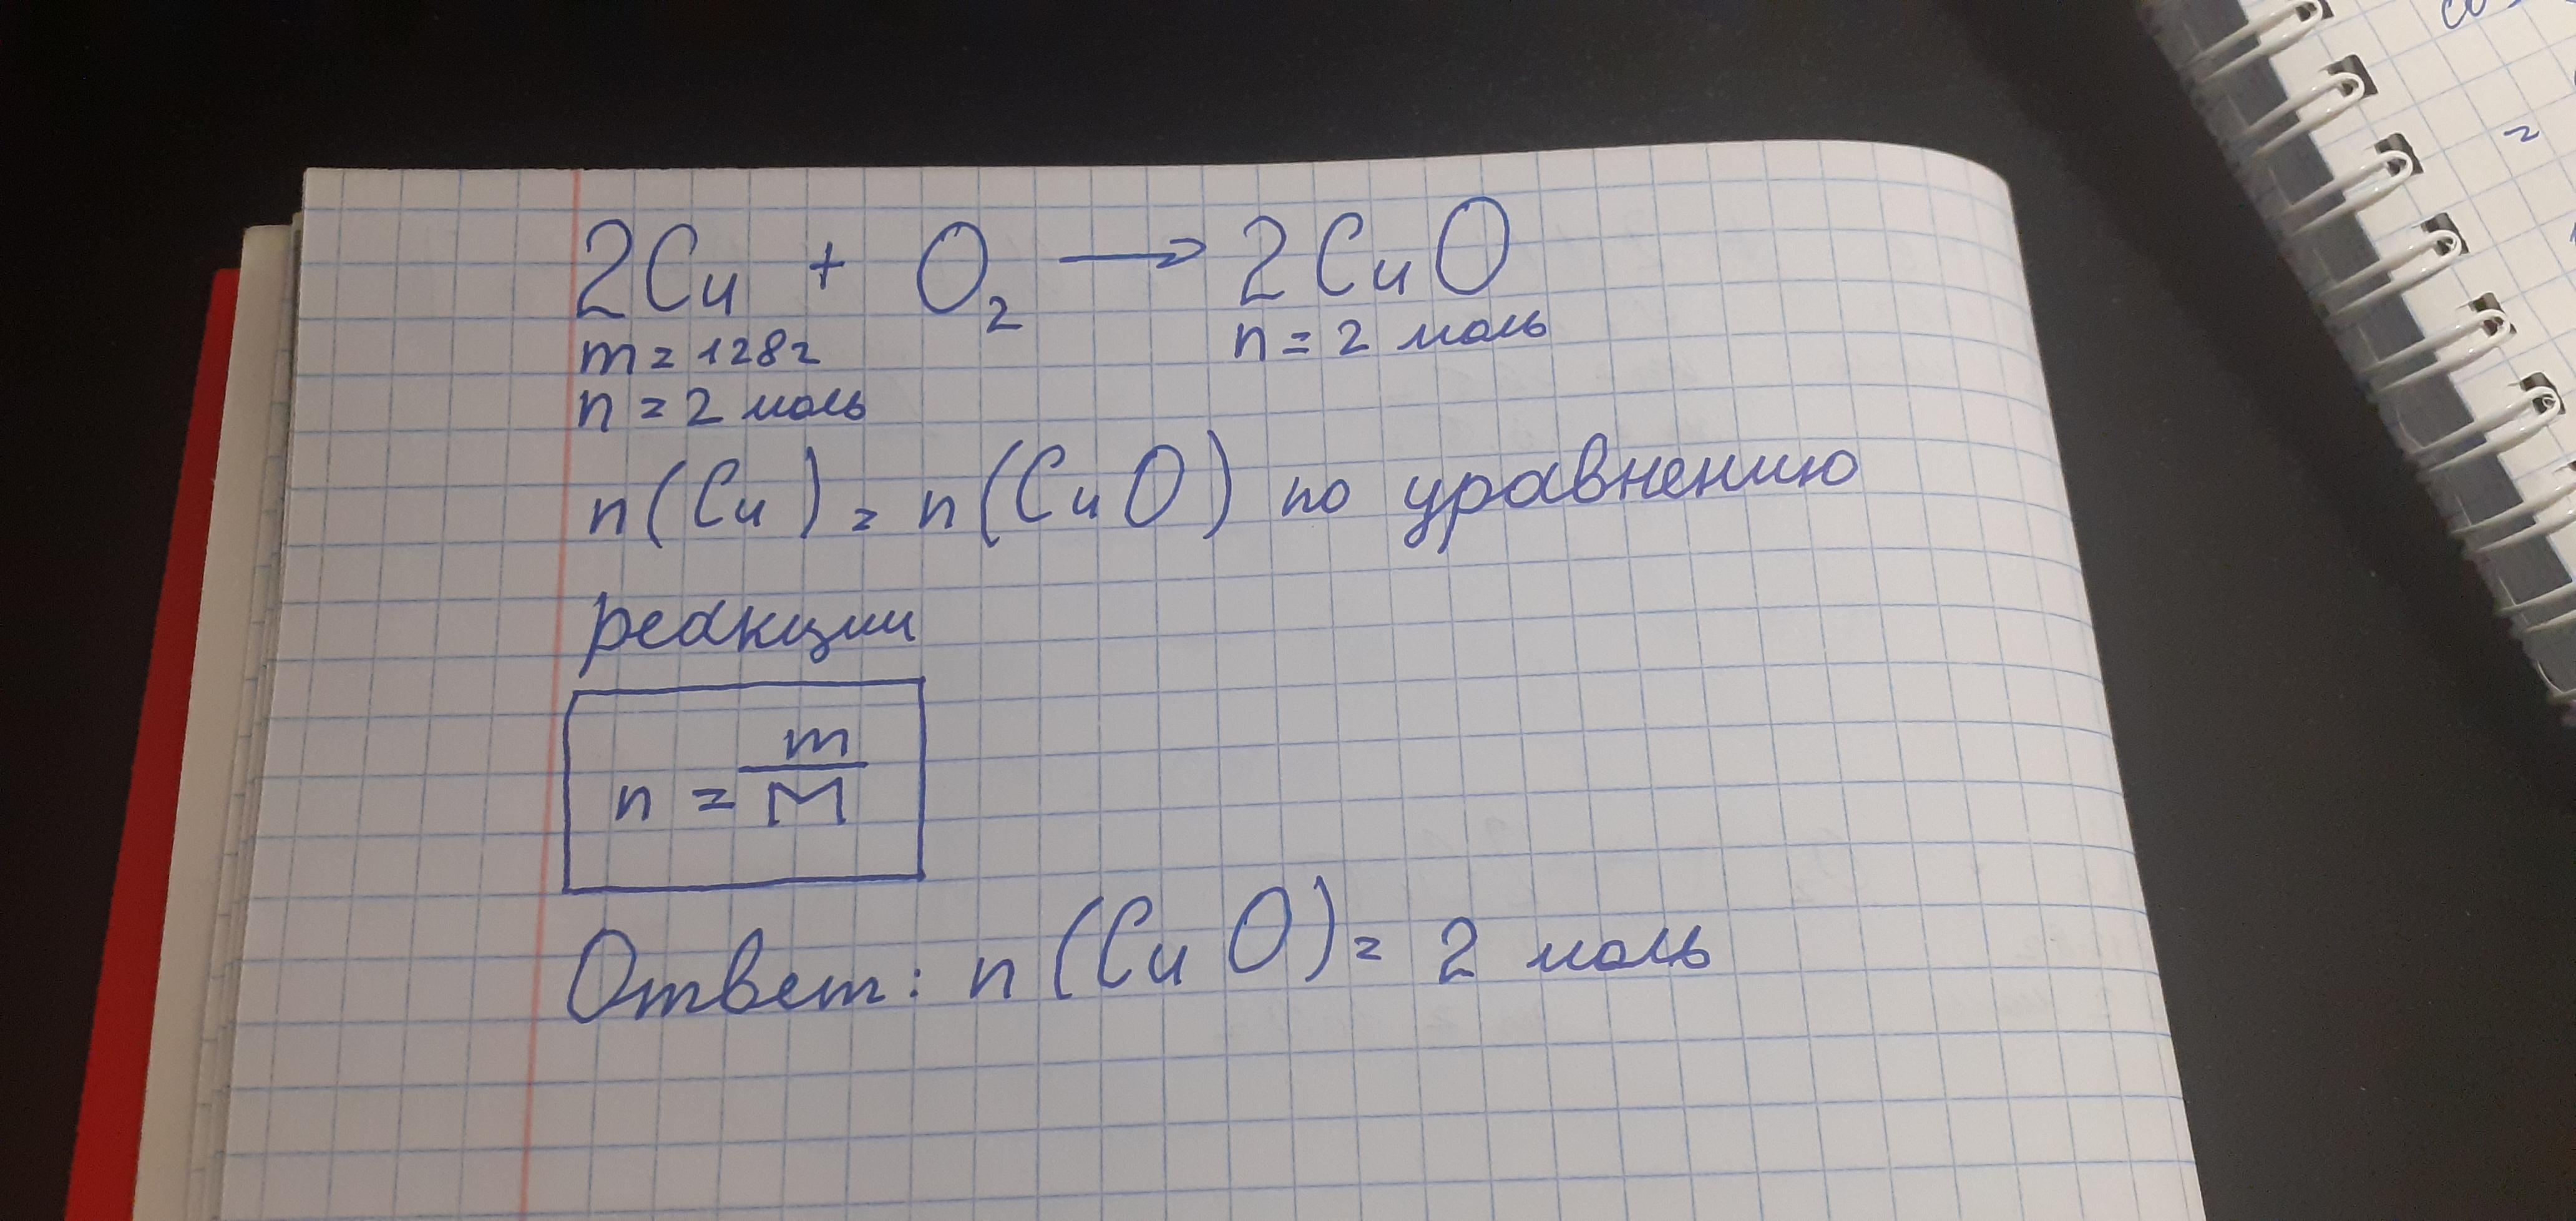 2Cu + O₂ → 2CuO
m = 128г
n = 2 моль
n = 2 моль
n(Cu) = n(CuO) по уравнению
реакции
n = m/M
Ответ: n(CuO) = 2 моль